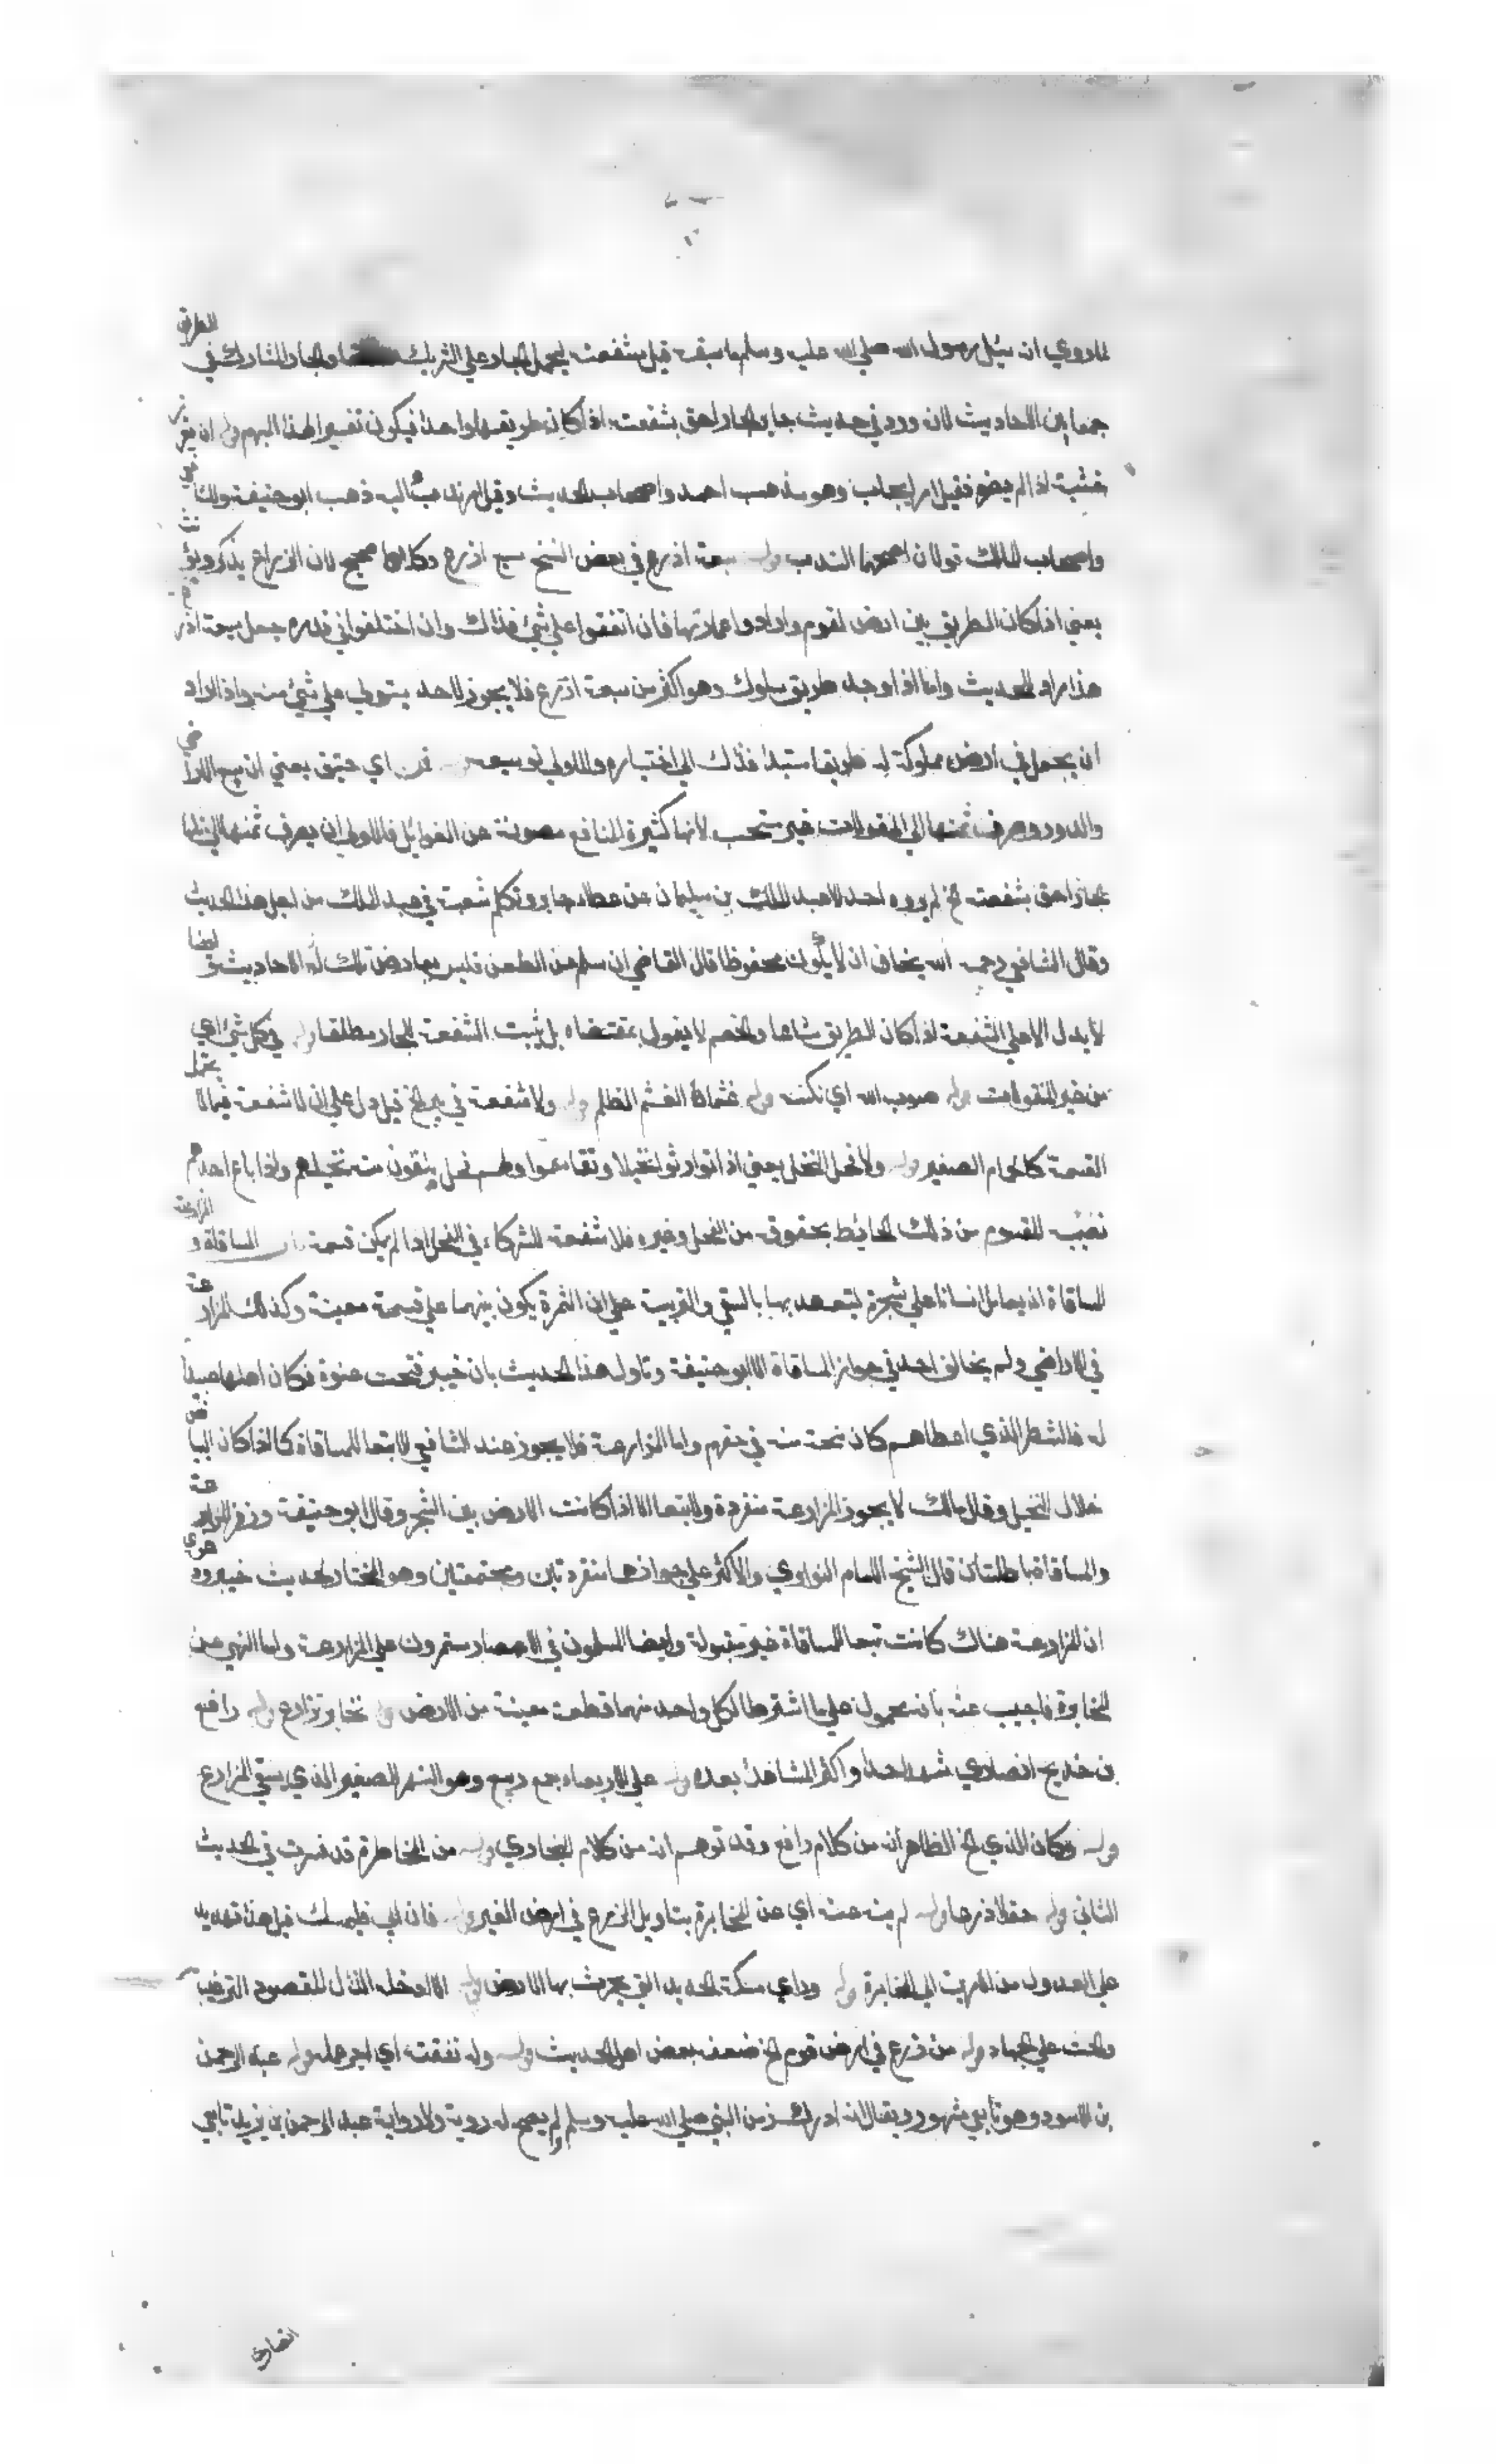 لما روي انه سئل رسول الله صلي الله عليه وسلم ما سقبه قيل شفعته ليحمل الجار علي الشريك والجار المشارك في الطريق
جمعا بين الاحاديث لانه ورد في حديث جابر الجار احق بشفعته اذا كان طريقهما واحدا فيكون تفسيرا لهذا المبهم قوله ان يغرز
خشبة اذا لم يضر فقيل الامر لإيجاب وهو مذهب احمد واصحاب الحديث وقيل الامر ندب واليه ذهب ابو حنيفة وللشافعي
واصحاب المالك قولان اصحهما الندب قوله سبعة اذرع في بعض النسخ سبع اذرع وكلاهما صحيح لان الذراع يذكر ويؤنث
يعني اذا كان الطريق بين ارض لقوم وارادوا عمارتها فان اتفقوا علي شيء فذاك وان اختلفوا في قدره جعل سبعة اذرع
هذا مراد الحديث واما اذا وجد طريق مسلوك وهو اكثر من سبعة اذرع فلا يجوز لاحد يستولي علي شيء منه واذا اراد
ان يجعل في ارض مملوكة له طريقا مسبلا فذلك الي اختياره والاولي توسيعه قوله قمن اي حقيق يعني ان بيع الاراضي
والدور وصرف ثمنها الي المنقولات غير مستحب لانها كثيرة المنافع مصونة عن الغوايل فالاولي ان يصرف ثمنها الي
الجار احق بشفعته الخ لم يروه احد الا عبد الملك بن سليمان عن عطا جابر وتكلم شعبة في عبد الملك من اجل هذا الحديث
وقال الشافعي رحمه الله يخاف ان لا يكون محفوظا قال القاضي ان سلم من الطعن فليس يعارض تلك الاحاديث ايضا
لا يدل الا علي الشفعة اذا كان الطريق شاعا والخصم لا يقول بمقتضاه بل يثبت الشفعة للجار مطلقا قوله في كل شيء اي
من غير المنقولات قوله صوب الله اي نكسه قوله غشما الغشم الظلم قوله ولا شفعة في بير الخ قيل دل علي ان لا شفعة فيما لا يحتمل
القسمة كالحمام الصغير قوله ولا فحل النخل يعني اذا توارثوا نخيلا وتقاسموا ولهم فحل يلقحون منه نخيلهم واذا باع احدهم
نصيبه المقسوم من ذلك الحائط بحقوقه من الفحل وغيره فلا شفعة للشركاء في الفحل اذا لم يكن قسمة باب المساقاة والمزارعة
المساقاة ان يعامل انسانا علي شجرة ليتعهد بها بالسقي والتربية علي ان الثمرة يكون بينهما علي قسمة معينة وكذلك المزارعة
في الاراضي ولم يخالف احد في جواز المساقاة الا ابو حنيفة وتاول هذا الحديث بان خيبر فتحت عنوة فكان اهلها عبيدا
له فالشطر الذي اعطاهم كان منحة منه في حقهم واما المزارعة فلا يجوز عند الشافعي الا تبعا للمساقاة كما اذا كان البياض
خلال النخيل وقال مالك لا يجوز المزارعة منفردة ولا تبعا الا اذا كانت الارض بين الشجر وقال ابو حنيفة وزفر المزارعة
والمساقاة باطلتان قال الشيخ الامام النواوي والاكثر علي جوازهما منفردتين ومجتمعتين وهو المختار لحديث خيبر ودعوي
ان المزارعة هناك كانت تبعا للمساقاة غير مقبولة وايضا المسلمون في الامصار مستمرون علي المزارعة واما النهي عن
المخابرة فاجيب عنه بانه محمول علي ما اشترطا لكل واحد منهما قطعة معينة من الارض قوله نخابر نزارع قوله رافع
بن خديج انصاري شهد احدا واكثر المشاهد بعده قوله علي الاربعاء جمع ربيع وهو النهر الصغير الذي يسقي المزارع
قوله وكان الذي الخ الظاهر انه من كلام رافع وقد توهم انه من كلام البخاري قوله من المخاطرة قد فسرت في الحديث
الثاني قوله حقلا ازرعها قوله لم ينه عنه اي عن المخابرة بتاويل الزرع في ارض الغير قوله فان ابي فليمسك قيل هذا تهديد
علي العدول من الامرين الي المخابرة قوله وراي سكة الحديد التي يحرث بها الارض قوله الا ادخله الذل المقصود الترغيب
والحث علي الجهاد قوله من زرع في ارض قوم الخ ضعفه بعض اهل الحديث قوله وله نفقته اي اجر عمله قوله عبد الرحمن
بن الاسود وهو تابعي مشهور ويقال انه ادرك زمن النبي صلي الله عليه وسلم ولم يصح له روية ولا رواية عبد الرحمن بن يزيد تابعي
انصاري